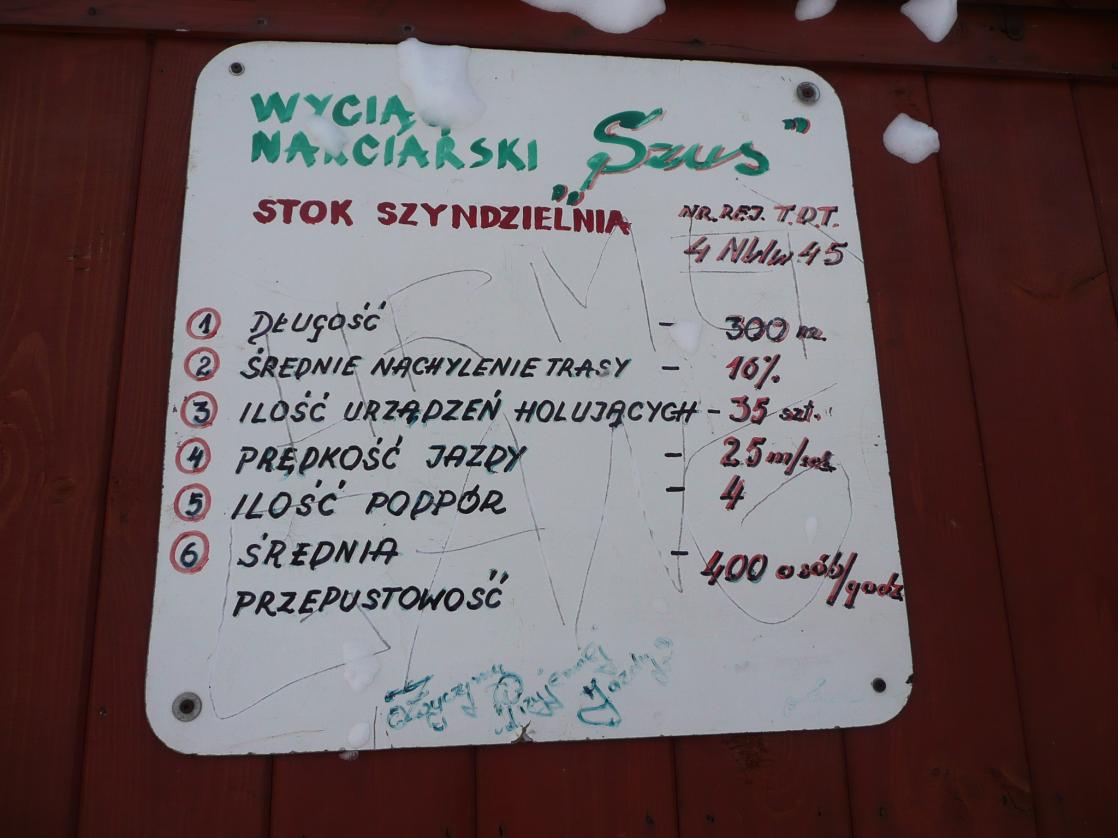 WYCIĄG
NARCIARSKI „Szus”
STOK SZYNDZIELNIA
NR. REJ. T.D.T.
4 NWw 45
1 DŁUGOŚĆ - 300 m.
2 ŚREDNIE NACHYLENIE TRASY - 16%
3 ILOŚĆ URZĄDZEŃ HOLUJĄCYCH - 35 szt.
4 PRĘDKOŚĆ JAZDY - 2.5 m/sek
5 ILOŚĆ PODPÓR - 4
6 ŚREDNIA - 400 osób/godz
PRZEPUSTOWOŚĆ
Życzymy Przyjemnej Jazdy